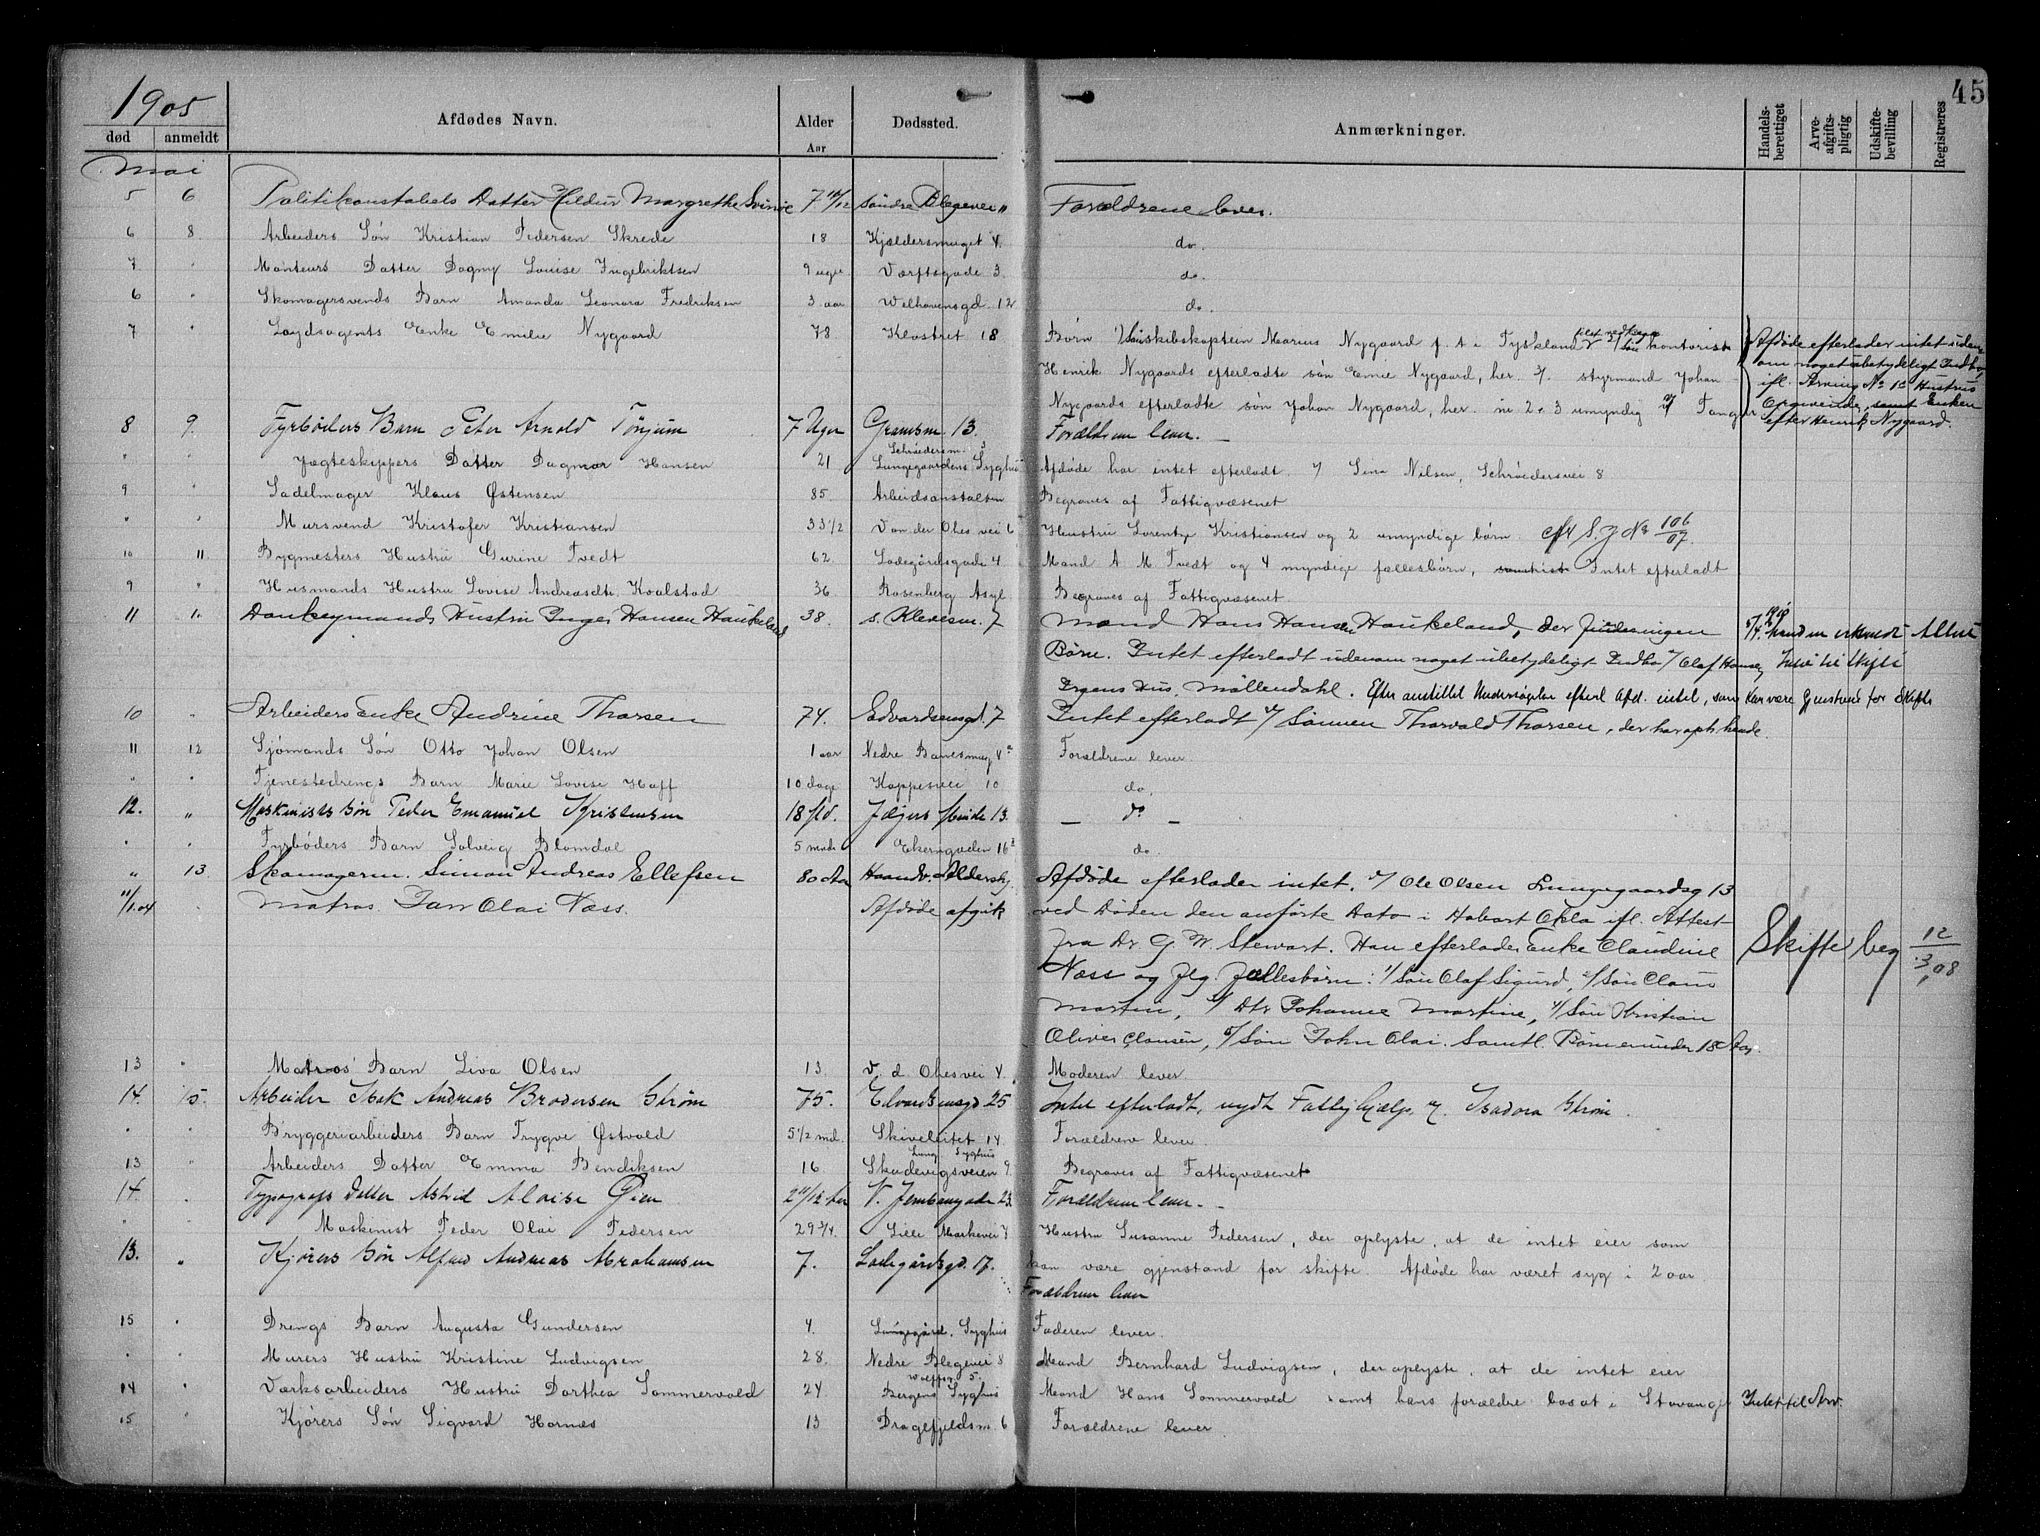 45
1905
død anmeldt Afdødes Navn. Alder Aar Dødssted. Anmærkninger. Handels-berettiget Arve-afgifts-pligtig Udskifte-bevilling Registreres
Mai
5 6 Politikonstabels Datter Hildur Margrethe 7 10/12 Søndre Blegevei " Forældrene lever.
6 8 Arbeiders Søn Kristian Pedersen Skrede 18 Kjeldersmuget 4. do.
7 " Monteurs Datter Dagny Louise Ingebriktsen 9 uger Værftsgade 3. do.
6 " Skomagersvends Barn Amanda Leonora Fredriksen 3 aar Welhavensgd. 12 do.
7 " Loydsagents Enke Emilie Nygaard 78 Klostret 18 Børn 1/ Skibskaptein Marius Nygaard f. t. i Tyskland 2/ Søn kontorist
Henrik Nygaards efterladte søn Emil Nygaard, her. 3/. styrmand Johan
Nygaards efterladte søn Johan Nygaard, her. nr 2 & 3 umyndig v/ Tanger
Afdøde efterlader intet uden-
om noget ubetydeligt Indbo,
ifl. Hustrus
Opgivende, samt Enken
efter Henrik Nygaard.
8 9. Fyrbøders Barn Peter Arnold Tønjum 7 Uger Gramsm. 13. Forældrene lever. —
" " Jægteskippers Datter Dagmar Hansen 21 Lungegaardens Syghus Afdøde har intet efterladt. v/ Sina Nilsen, Schrødersvei 8
9 " Sadelmager Klaus Østensen 85. Arbeidsanstalten Begraves af Fattigvæsenet
" " Mursvend Kristofer Kristiansen 33 1/2 Von der Ohes vei 6 Hustru Lorentze Kristiansen og 2 umyndige børn. cfr S. J No 106/07.
10 11. Bygmesters Hustru Gurine Tvedt 62 Ladegårdsgade 4 Mand A M Tvedt og 4 myndige fællesbørn, Intet efterladt
9 " Husmands Hustru Lovise Andreasdtr. Koalstad 36 Rosenberg Asyl Begraves af Fattigvæsenet.
11 11. Donkeymands Hustru Inger Hansen Haukeland 38. s. Klevesm. 7 Mand Hans Hansen Haukeland, der ingen
Børn. Intet efterladt udenom noget ubetydeligt Indbo v/ Olaf Hansen
Irgens Hus, Møllendahl. Efter anstillet Undersøgelse efterl Afd. intet, som kan være Gjenstand for Skifte
10 " Arbeiders Enke Andrine Thorsen 74. Edvardsensgd. 7 Intet efterladt v/ Sønnen Thorvald Thorsen, der har
11 12 Sjømands Søn Otto Johan Olsen 1 aar Nedre Banesmug 4a Forældrene lever.
" " Tjenestedrengs Barn Marie Lovise Hoff 10 dage Kappesvei 10 do.
12. " Maskinists Søn Peder Emanuel Kristensen 18 Md. Jægers Minde 13. — do —
" " Fyrbøders Barn Solveig Blomdal 5 mnde Ekerngaden 16 do.
" 13. Skomagerm. Simon Andreas Ellefsen 80 Aar Haandv. Aldershj. Afdøde efterlader intet. v/ Ole Olsen Lungegaardsg 13
11/1.04 " Matros Jan Olai Næss. Afdøde afgik ved Døden den anførte Dato i Hobart Okla ifl. Attest
fra Dr G. W. Stewart. Han efterlader Enke Claudine
Næss og flg. Fællesbørn: 1/ Søn Olaf Sigurd, 2/ Søn Claus
Martin, 3/ Dtr Johanne Martine, 4/ Søn Christian
Oliver Clausen, 5/ Søn John Olai. Samtl. Børn er under 18 Aar.
Skifte beg 12/3.08
13 " Matros' Barn Liva Olsen 13. V. d. Ohesvei 4. Moderen lever.
14. 15. Arbeider Isak Andreas Brodersen Strøm 75. Edvardsensgd 25 Intet efterladt, nydt Fattighjælp. v/. Isadora Strøm.
" " Bryggeriarbeiders Barn Trygve Østvold 5 1/2 md. Skivebitet 14. Forældrene lever.
13 " Arbeiders Datter Emma Bendiksen 16 Lung Syghus Skudevigsveien 9. Begraves af Fattigvæsenet
14. " Typografs Datter Astrid Aloise Øien 2 10/12 Aar V. Jernbanegade 23. Forældrene lever. —
" " Maskinist Peder Olai Pedersen 29 3/4. Lille Markevei 7 Hustru Susanne Pedersen, der oplyste, at de intet eier som
kan være gjenstand for skifte. Afdøde har været syg i 2 aar.
13. " Kjørers Søn Alfred Andreas Abrahamsen 7. Ladegårdsgd. 17. Forældrene lever
15 " Drengs Barn Augusta Gundersen 4. Lungegård. Syghus Faderen lever.
" " Murers Hustru Kristine Ludvigsen 28. Nedre Blegevei 8 Mand Bernhard Ludvigsen, der oplyste, at de intet eier
14 " Værksarbeiders Hustru Dorthea Sommervold 24 Bergens Syghus Mand Hans Sommervold samt hans forældre bosat i Stavanger Intet til Arv.
15 " Kjørers Søn Sigvard Hornæs 13 Dragefjeldsm. 6 Forældrene lever.